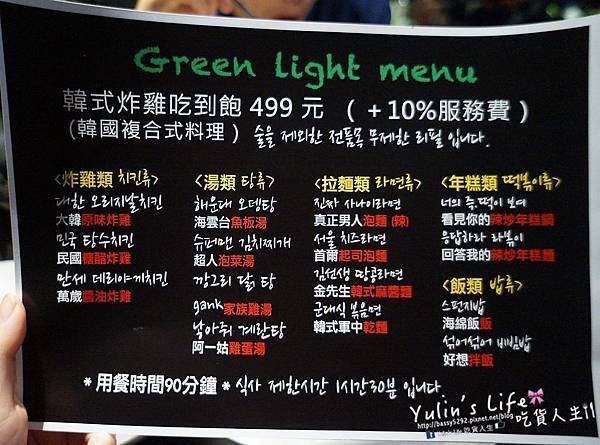 Green light menu
韓式炸雞吃到飽 499 元 （＋10%服務費）
（韓國複合式料理） 술을 제외한 전품목 무제한 리필 입니다.
<炸雞類 치킨류>
대한 오리지날치킨
大韓原味炸雞
민국 탕수치킨
民國糖醋炸雞
만세 데리야끼치킨
萬歲醬油炸雞
<湯類 탕류>
해운대 오뎅탕
海雲台魚板湯
슈퍼맨 김치찌개
超人泡菜湯
깡그리 닭 탕
gank家族雞湯
낳아줘 계란탕
阿一姑雞蛋湯
<拉麵類 라면류>
진짜 사나이라면
真正男人泡麵 (辣)
서울 치즈라면
首爾起司泡麵
김선생 땅콩라면
金先生韓式麻醬麵
군대식 볶음면
韓式軍中乾麵
<年糕類 떡볶이류>
너의 죽.떡이 보여
看見你的辣炒年糕鍋
응답하라 라볶이
回答我的辣炒年糕麵
<飯類 밥류>
스펀지밥
海綿飯飯
섞어섞어 비빔밥
好想拌飯
*用餐時間90分鐘* 식사 제한시간 1시간30분 입니다
Yulin's Life
http://bassy5292.pixnet.net/blog
吃貨人生!!
Yulin's Life 吃貨人生